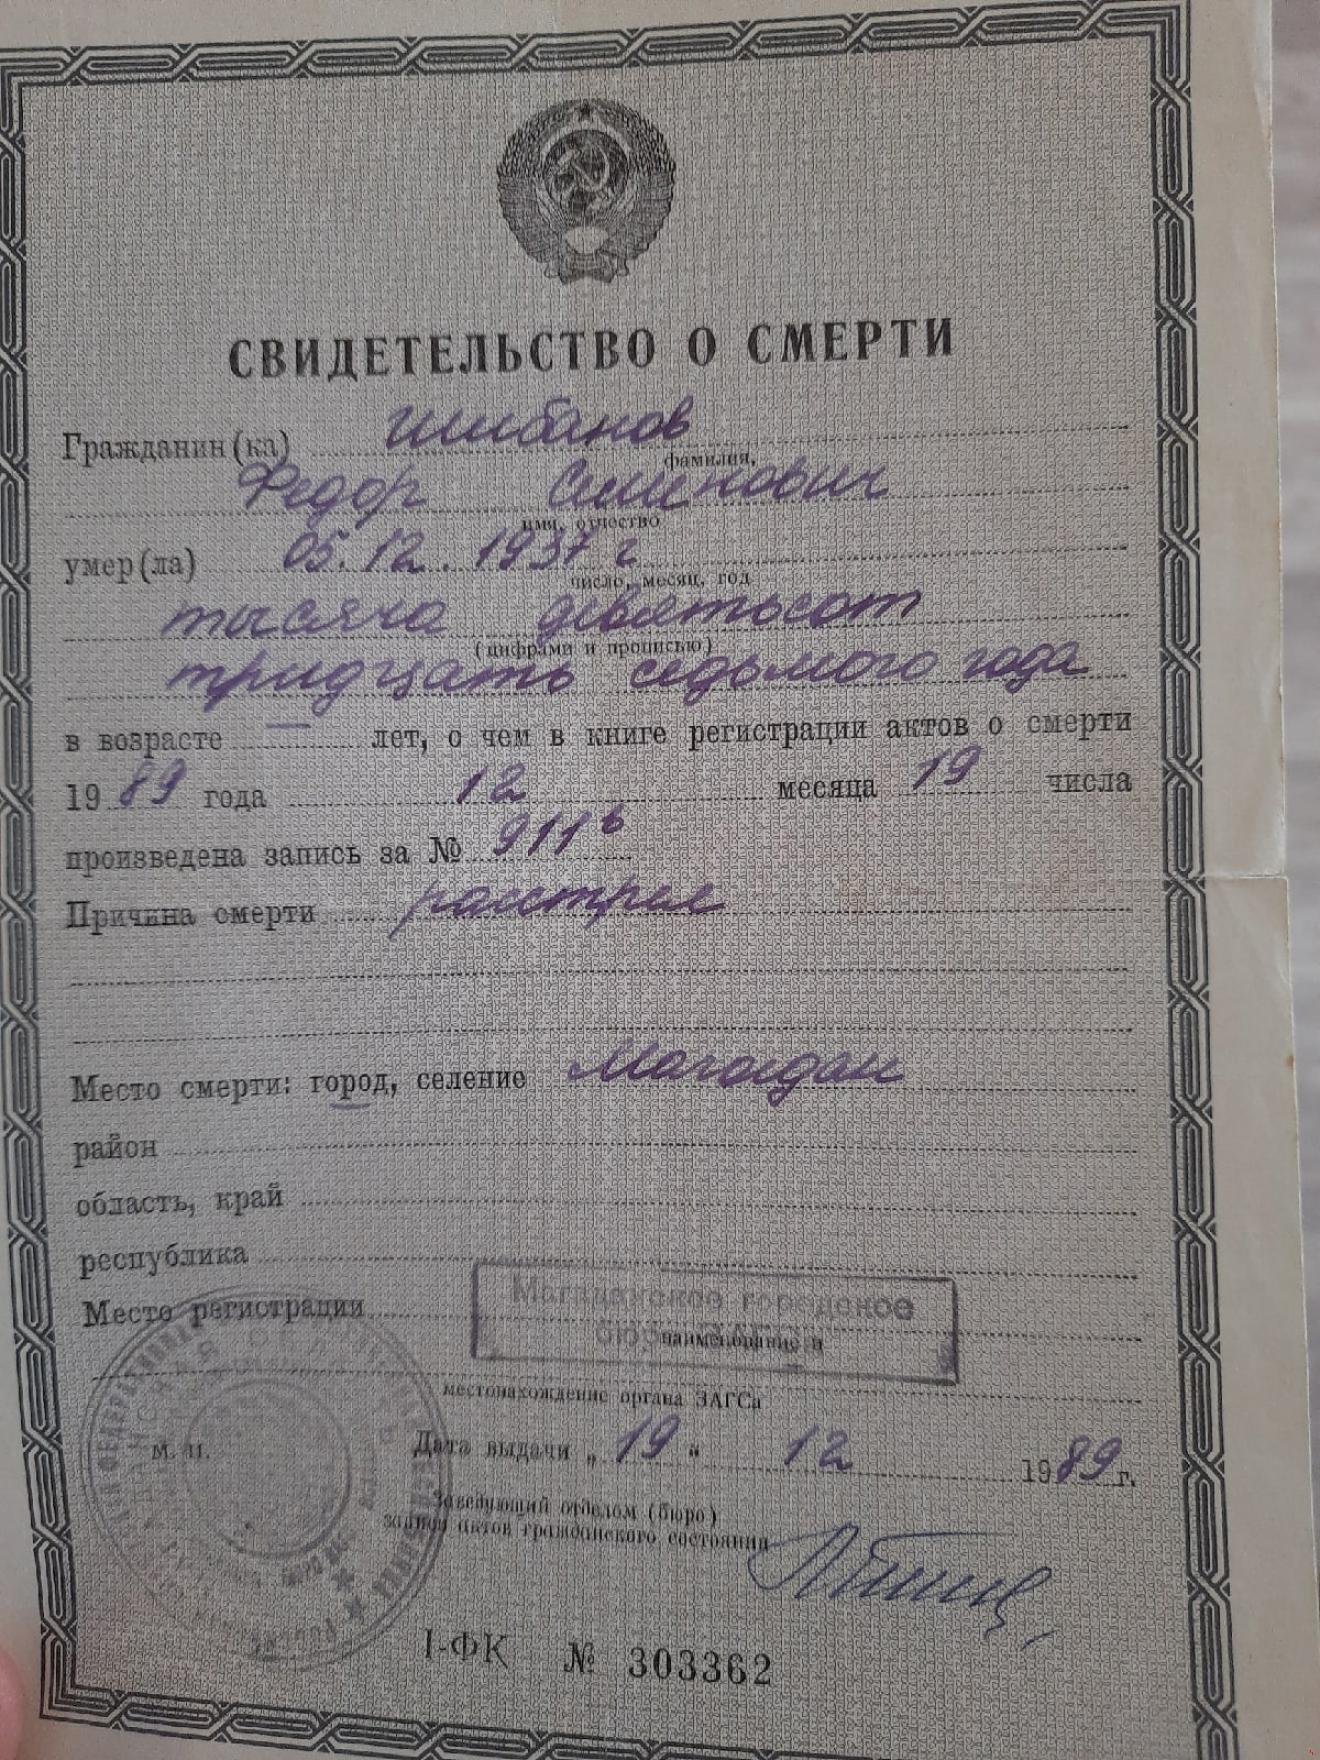 СВИДЕТЕЛЬСТВО О СМЕРТИ
Гражданин(ка) Шибанов
фамилия,
Федор Семенович
имя, отчество
умер(ла) 05.12.1937 г
число, месяц, год
тысяча девятьсот
(цифрами и прописью)
тридцать седьмого года
в возрасте — лет, о чем в книге регистрации актов о смерти
1989 года 12 месяца 19 числа
произведена запись за № 911
Причина смерти расстрел
Место смерти: город, селение Магадан
район
область, край
республика
Место регистрации
Магаданское городское
бюро ЗАГС
наименование и
местонахождение органа ЗАГСа
М. П.
Дата выдачи „19“ 12 1989 г.
Заведующий отделом (бюро)
записи актов гражданского состояния
I-ФК № 303362